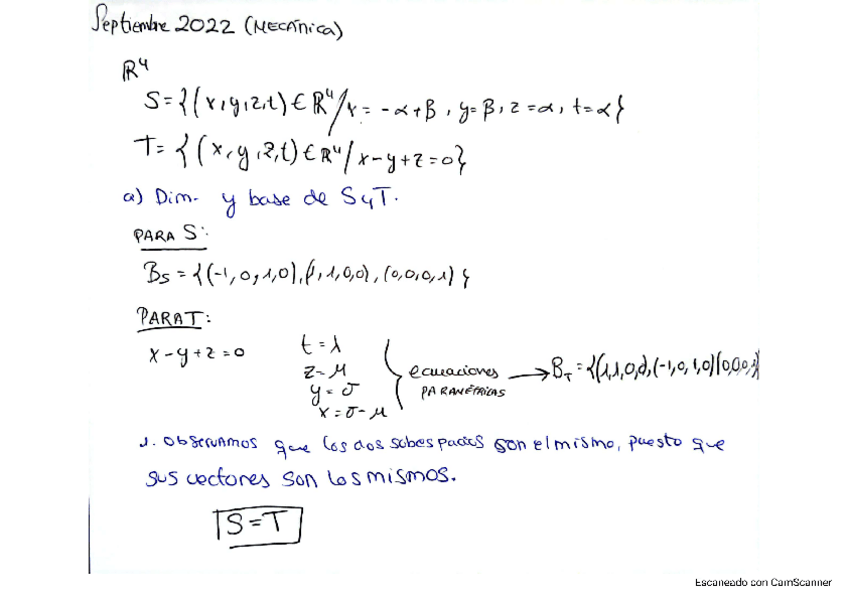 Septiembre 2022 (MECÁNICA)
R⁴
S={(x,y,z,t)∈R⁴/x=-α+β, y=β, z=α, t=α}
T={(x,y,z,t)∈R⁴/x-y+z=0}
a) Dim. y base de S y T.
PARA S:
Bs={(-1,0,1,0),(1,1,0,0),(0,0,0,1)}
PARA T:
x-y+z=0
t=λ
z=μ
y=σ
x=σ-μ
ecuaciones
PARAMÉTRICAS
→B_T={(1,1,0,0),(-1,0,1,0)(0,0,0,1)}
1. Observamos que los dos subespacios son el mismo, puesto que
sus vectores son los mismos.
S=T
Escaneado con CamScanner